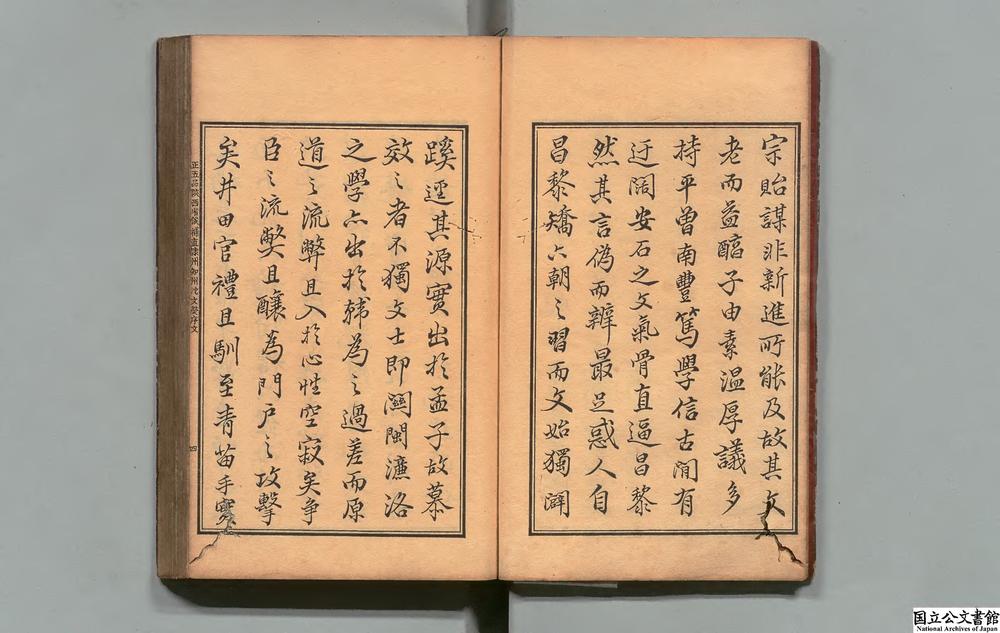 宗貽謀非新進所能及故其文
老而益醇子由素溫厚議多
持平曾南豐篤學信古間有
迂闊安石之文氣骨直逼昌黎
然其言偽而辨最足惑人自
昌黎矯六朝之習而文始獨闢
蹊逕其源實出於孟子故慕
效之者不獨文士即關閩濂洛
之學亦出於韓為之過差而原
道之流弊且入於心性空寂矣爭
臣之流弊且釀為門戶之攻擊
矣井田官禮且馴至青苗手實
四
国立公文書館
National Archives of Japan